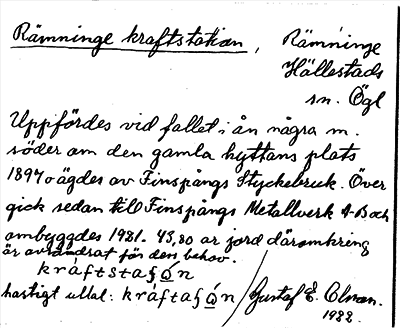 Rämninge kraftstation, Rämninge
Hällestads
sn. Ögl
Uppfördes vid fallet i ån några m.
söder om den gamla hyttans plats
1897 o ägdes av Finspångs Styckebruk. Över
gick sedan till Finspångs Metallverk A-B och
ombyggdes 1981. 43,80 ar jord däromkring
är avsöndrat för dess behov.
kráftstaʃon
hastigt uttal: kráftaʃon / Gustaf E.
1982.